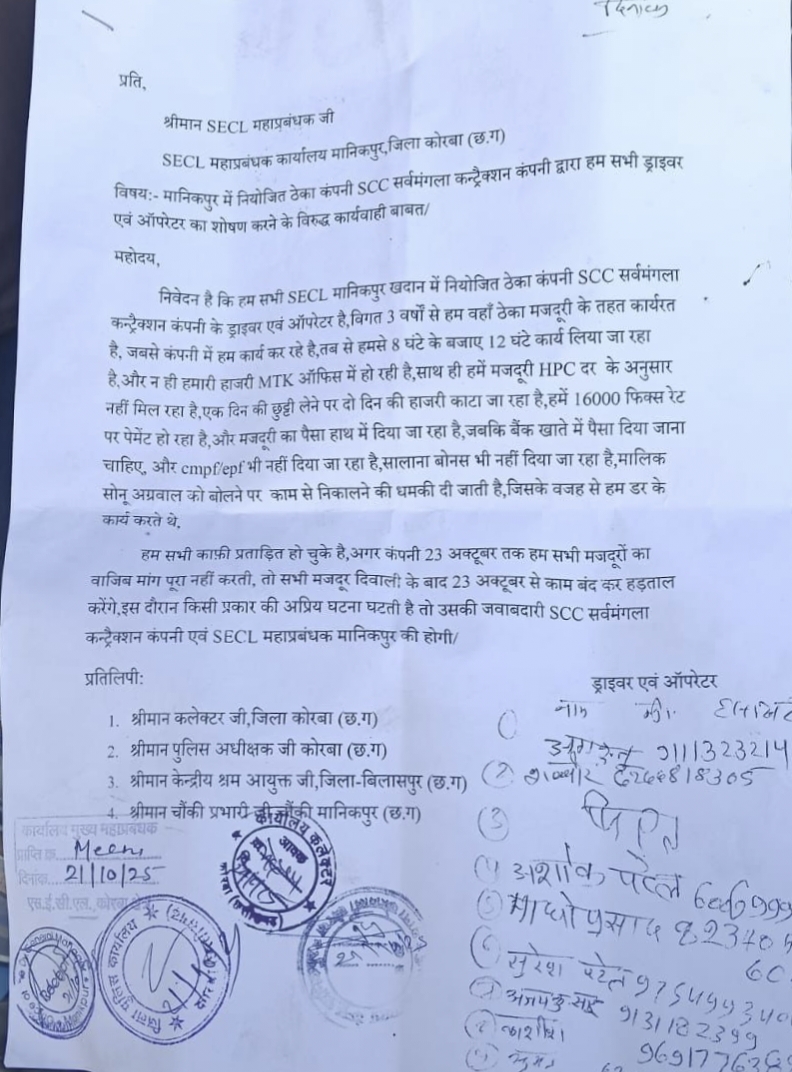 दिनांक
प्रति,
श्रीमान SECL महाप्रबंधक जी
SECL महाप्रबंधक कार्यालय मानिकपुर,जिला कोरबा (छ.ग)
विषय:- मानिकपुर में नियोजित ठेका कंपनी SCC सर्वमंगला कन्ट्रैक्शन कंपनी द्वारा हम सभी ड्राइवर
एवं ऑपरेटर का शोषण करने के विरुद्ध कार्यवाही बाबत/
महोदय,
निवेदन है कि हम सभी SECL मानिकपुर खदान में नियोजित ठेका कंपनी SCC सर्वमंगला
कन्ट्रैक्शन कंपनी के ड्राइवर एवं ऑपरेटर है,विगत 3 वर्षों से हम वहाँ ठेका मजदूरी के तहत कार्यरत
है, जबसे कंपनी में हम कार्य कर रहे है,तब से हमसे 8 घंटे के बजाए 12 घंटे कार्य लिया जा रहा
है,और न ही हमारी हाजरी MTK ऑफिस में हो रही है,साथ ही हमें मजदूरी HPC दर के अनुसार
नहीं मिल रहा है,एक दिन की छुट्टी लेने पर दो दिन की हाजरी काटा जा रहा है,हमें 16000 फिक्स रेट
पर पेमेंट हो रहा है,और मजदूरी का पैसा हाथ में दिया जा रहा है,जबकि बैंक खाते में पैसा दिया जाना
चाहिए, और cmpf/epf भी नहीं दिया जा रहा है,सालाना बोनस भी नहीं दिया जा रहा है,मालिक
सोनू अग्रवाल को बोलने पर काम से निकालने की धमकी दी जाती है,जिसके वजह से हम डर के
कार्य करते थे,
हम सभी काफ़ी प्रताड़ित हो चुके है,अगर कंपनी 23 अक्टूबर तक हम सभी मजदूरों का
वाजिब मांग पूरा नहीं करती, तो सभी मजदूर दिवाली के बाद 23 अक्टूबर से काम बंद कर हड़ताल
करेंगे,इस दौरान किसी प्रकार की अप्रिय घटना घटती है तो उसकी जवाबदारी SCC सर्वमंगला
कन्ट्रैक्शन कंपनी एवं SECL महाप्रबंधक मानिकपुर की होगी/
प्रतिलिपी:
1. श्रीमान कलेक्टर जी,जिला कोरबा (छ.ग)
2. श्रीमान पुलिस अधीक्षक जी कोरबा (छ.ग)
3. श्रीमान केन्द्रीय श्रम आयुक्त जी,जिला-बिलासपुर (छ.ग)
4. श्रीमान चौंकी प्रभारी जी,चौंकी मानिकपुर (छ.ग)
ड्राइवर एवं ऑपरेटर
नाम मो.
9111323214
3
4 अशोक पटेल
5 माधो प्रसाद
6 सुरेश पटेल
9131182399
कार्यालय मुख्य महाप्रबंधक
दिनांक 21/10/25
एस.ई.सी.एल., कोरबा
कार्यालय कलेक्टर
आवक
कोरबा (छत्तीसगढ़)
जिला पुलिस कार्यालय